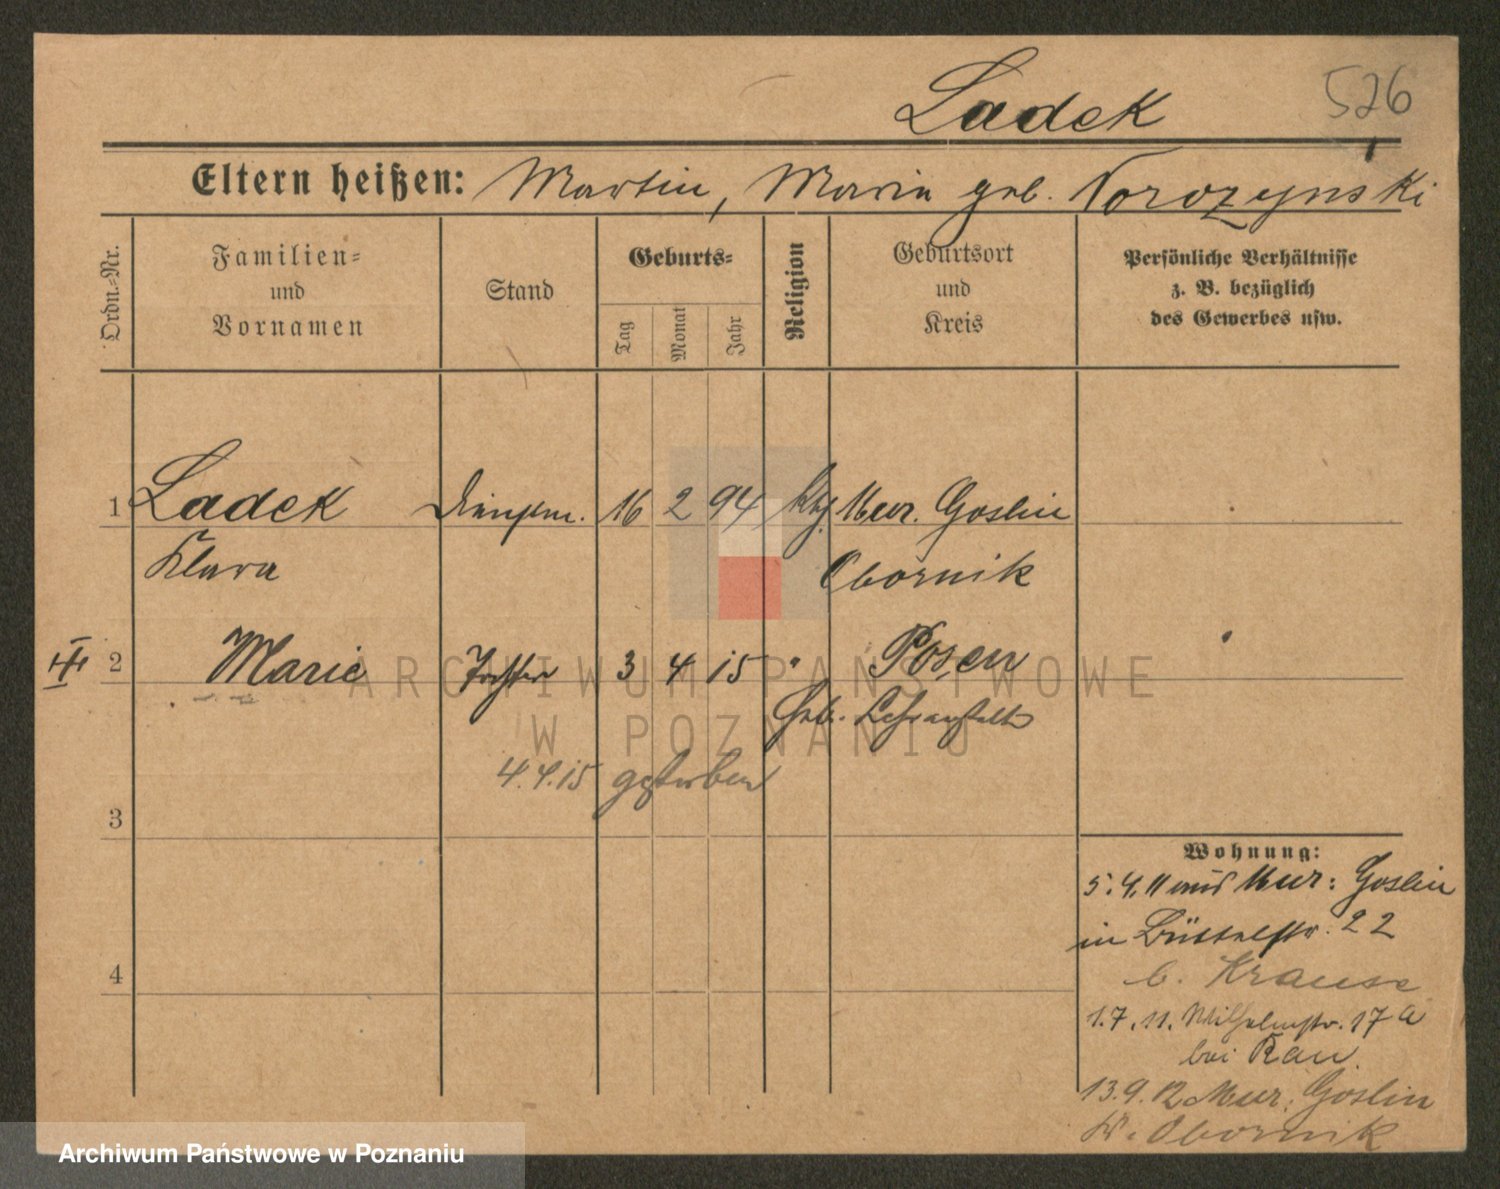 Ladek
526
Eltern heißen: Martin, Maria geb. Norozynski
Ordn.-Nr.
Familien-
und
Vornamen
Stand
Geburts-
Tag
Monat
Jahr
Religion
Geburtsort
und
Kreis
Persönliche Verhältnisse
z. B. bezüglich
des Gewerbes usw.
1 Ladek 16 2 94 kth. Mur. Goslin
Klara Obornik
2 Marie Tochter 3 4 15 " Posen
Geb. Lehranstalt
4.4.15 gestorben
3
4
Wohnung:
5.4.11 aus Mur: Goslin
in Büttelstr. 22
b. Krause
1.7.11. Wilhelmstr. 17a
bei Rau
13.9.12 Mur. Goslin
Kr. Obornik
ARCHIWUM PAŃSTWOWE
W POZNANIU
Archiwum Państwowe w Poznaniu